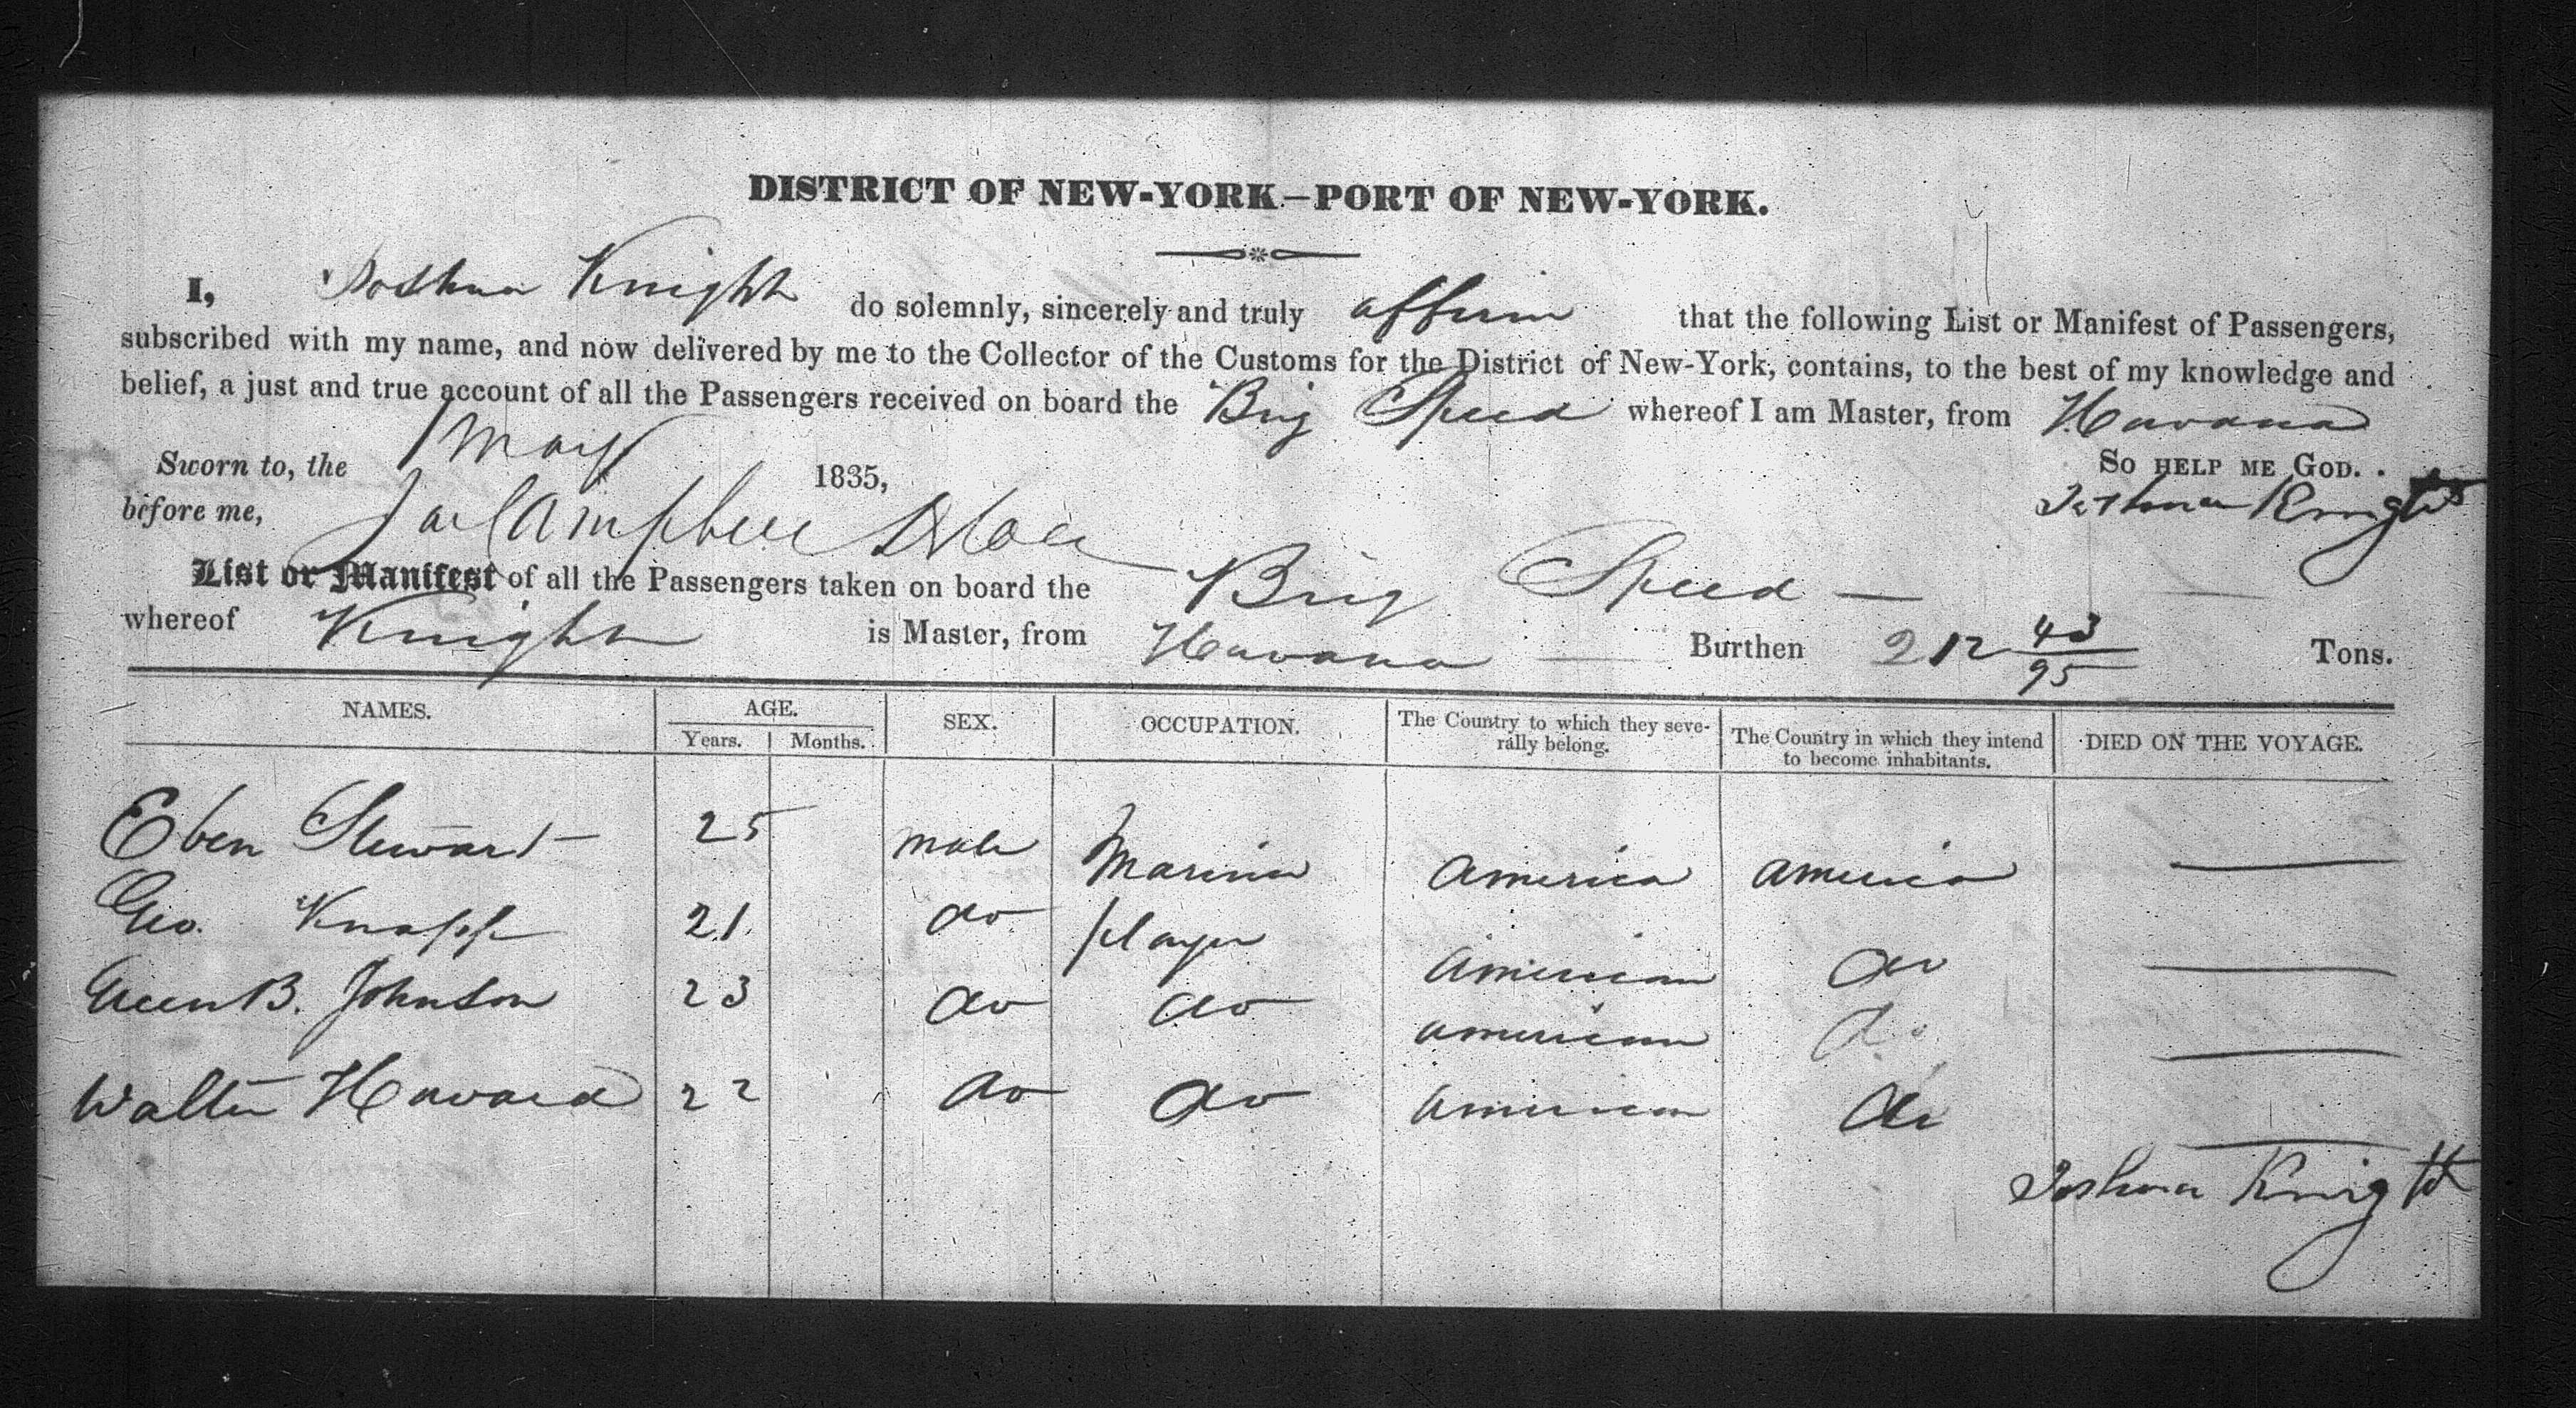 DISTRICT OF NEW-YORK—PORT OF NEW-YORK.
I, Joshua Knight do solemnly, sincerely and truly affirm that the following List or Manifest of Passengers,
subscribed with my name, and now delivered by me to the Collector of the Customs for the District of New-York, contains, to the best of my knowledge and
belief, a just and true account of all the Passengers received on board the Brig Speed whereof I am Master, from Havana
Sworn to, the 1 May 1835, So help me God.
before me, Campbell Joshua Knight
List or Manifest of all the Passengers taken on board the Brig Speed —
whereof Knight is Master, from Havana Burthen 212 43/95 Tons.
NAMES. AGE. SEX. OCCUPATION. The Country to which they severally belong. The Country in which they intend to become inhabitants. DIED ON THE VOYAGE.
Years. Months.
Eben Stewart 25 male Marine America America —
Geo. Knapp 21 do player American do —
B. Johnson 23 do do American do —
Walter Havard 22 do do American do —
Joshua Knight